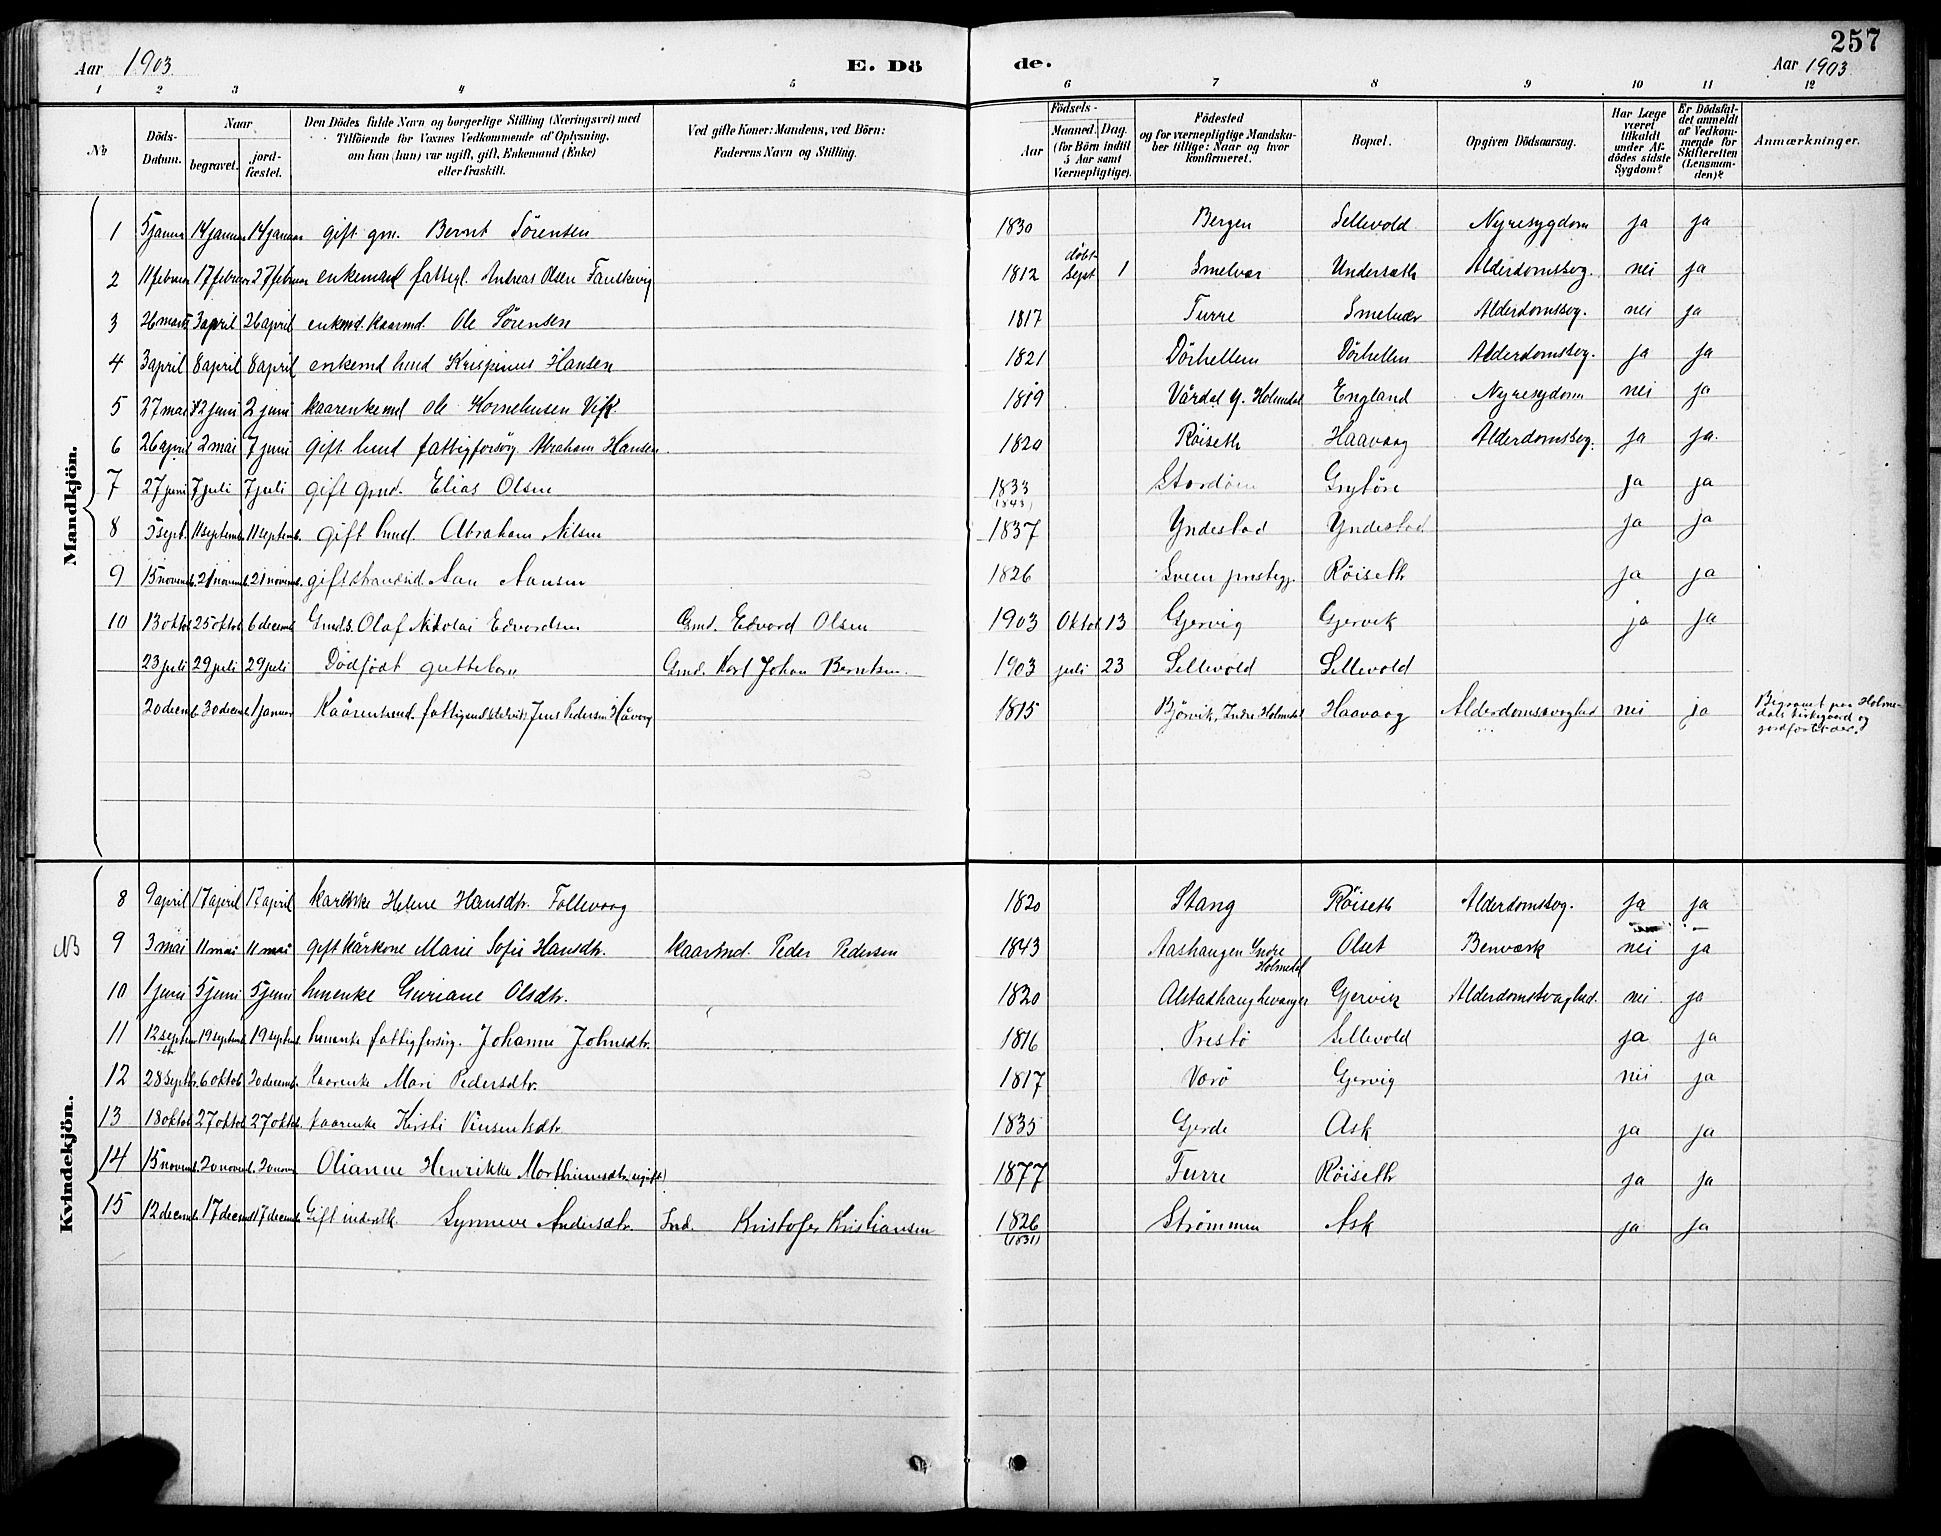 257
Aar 1903. E. Dö de. Aar 1903.
1 2 3 4 5 6 7 8 9 10 11 12
No Döds-Datum. Naar begravet. jord-fæstet. Den Dödes fulde Navn og borgerlige Stilling (Næringsvei) med Tilföiende for Voxnes Vedkommende af Oplysning, om han (hun) var ugift, gift, Enkemand (Enke) eller fraskilt. Ved gifte Koner: Mandens, ved Börn: Faderens Navn og Stilling. Födsels- Aar Maaned. Dag (for Börn indtil 5 Aar samt Værnepligtige). Födested og for værnepligtige Mandskaber tillige: Naar og hvor konfirmeret. Bopæl. Opgiven Dödsaarsag. Har Læge været tilkaldt under Afdödes sidste Sygdom? Er Dödsfaldet anmeldt af Vedkommende for Skifteretten (Lensmanden)? Anmærkninger.
Mandkjön.
1 5 januar 14 januar 14 januar gift gm. Bernt Sörensen 1830 Bergen Sellevold Nyresygdom ja ja
2 11 februar 17 februar 27 februar enkemand fattigl. Andreas Olsen Fanskevig 1812 döbt Sept 1 Smelvær Undersæth Alderdomssvg. nei ja
3 26 marts 3 april 26 april enkmd. kaarmd. Ole Sörensen 1817 Turre Smelvær Alderdomssvg. nei ja
4 3 april 8 april 8 april enkemd hmd Krispinus Hansen 1821 Dörhellen Dörhellen Alderdomssvg. ja ja
5 27 mai 2 juni 2 juni kaarenkemd Ole Kornelius en Vik 1819 Vårdal Y. Holmedal England Nyresygdom nei ja
6 26 april 2 mai 7 juni gift hmd fattigforsörg. Abraham Hansen 1820 Röiseth Haavaag Alderdomssvg. ja ja.
7 27 juni 7 juli 7 juli gift gmd. Elias Olsen 1833 (1843) Stordöen Grytöre ja ja
8 5 sept. 11 septemb. 11 septemb. gift hmd Abraham Nilsen 1837 Yndestad Yndestad ja ja
9 15 novemb. 21 novemb. 21 novemb. gift strandsid. Aan Aansen 1826 Sveen prestegj. Röiseth ja ja
10 13 oktob 25 oktob 6 decemb Gmds. Olaf Nikolai Edvardsen Gmd. Edvard Olsen 1903 Oktob 13 Gjervig Gjervik ja ja
23 juli 29 juli 29 juli Dödfödt guttebarn Gmd. Karl Johan Berntsen. 1903 juli 23 Sellevold Sellevold
20 decemb. 30 decemb. 1 januar Kaarenkmd. Jens Pedersen Håvaag 1815 Björvik, Indre Holmedal Haavaag Alderdomssvaghed nei ja Begravet paa Holmedals kirkegaard og jordfæstet der.
Kvindekjön.
8 9 april 17 april 17 april karenke Helene Hansdtr. Follevaag 1820 Stang Röiseth Alderdomssvg. ja ja
NB 9 3 mai 11 mai 11 mai gift kårkone Marie Sofie Hansdtr. kaarmd. Peder Pedersen 1843 Aashaugen Yndre Holmedal Olset Benværk nei ja
10 1 juni 5 juni 5 juni hmenke Guriane Olsdtr. 1820 Gjervik Alderdomssvaghed. nei ja
11 12 septbr 19 septemb. 19 septemb. hmenke fattigforsörg. Johanne Johnsdtr. 1816 Prestö Sellevold ja ja
12 28 septbr. 6 oktob 20 decemb. kaarenke Mari Pedersdtr. 1817 Værö Gjervig nei ja
13 18 oktob 27 oktob 27 oktob. kaarenke Kirsti Vinsentsdtr 1835 Gjerde Ask ja ja
14 15 novemb. 20 novemb. 20 novem Olianne Henrikke Morthinusdtr. (ugift) 1877 Turre Röiseth ja ja
15 12 decemb. 17 decemb 17 decemb. Gift inderstk. Synneve Andersdtr. Ind. Kristofer Kristiansen 1826 (1831) Strömmen Ask ja ja